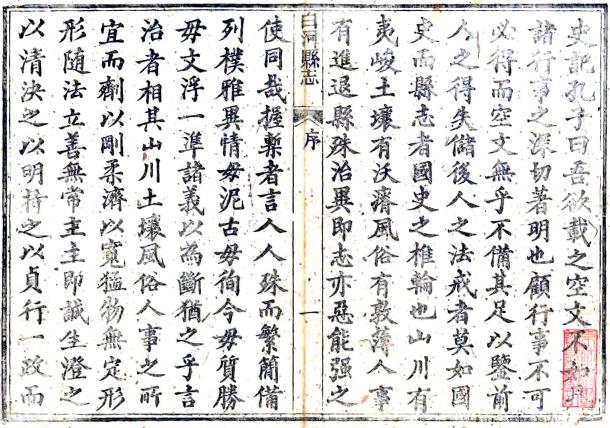 史記孔子曰吾欲載之空文不如
諸行事之深切著明也顧行事不可
必得而空文無乎不備其足以鑒前
人之得失儲後人之法戒者莫如國
史而縣志者國史之椎輪也山川有
夷峻土壤有沃瘠風俗有敦薄人事
有進退縣殊治異即志亦惡能强之
白河縣志 序 一
使同哉握槧者言人人殊而繁簡備
列樸雅異情毋泥古毋徇今毋質勝
毋文浮一準諸義以為斷猶之乎言
治者相其山川土壤風俗人事之所
宜而劑以剛柔濟以寬猛物無定形
形随法立善無常主主即誠生澄之
以清決之以明持之以貞行一政而